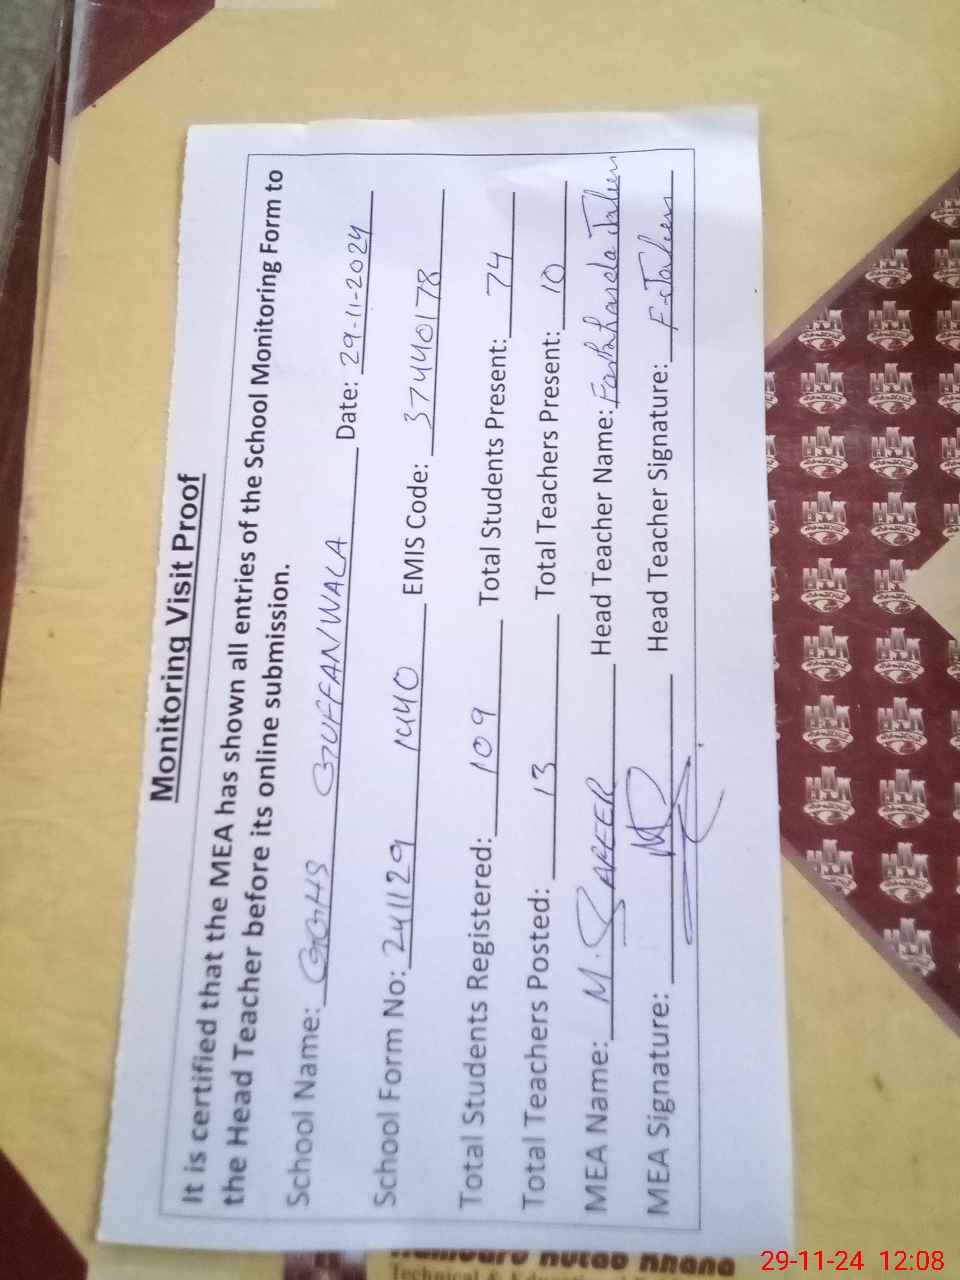 Monitoring Visit Proof
It is certified that the MEA has shown all entries of the School Monitoring Form to
the Head Teacher before its online submission.
School Name: GGHS GUFFANWALA Date: 29-11-2024
School Form No: 2411129 1440 EMIS Code: 37440178
Total Students Registered: 109 Total Students Present: 74
Total Teachers Posted: 13 Total Teachers Present: 10
MEA Name: M. SAFEER Head Teacher Name: Farkhanda Jabeen
MEA Signature: Head Teacher Signature: F-Jabeen
Hamdard Kutab Khana
Technical & Educational
29-11-24 12:08